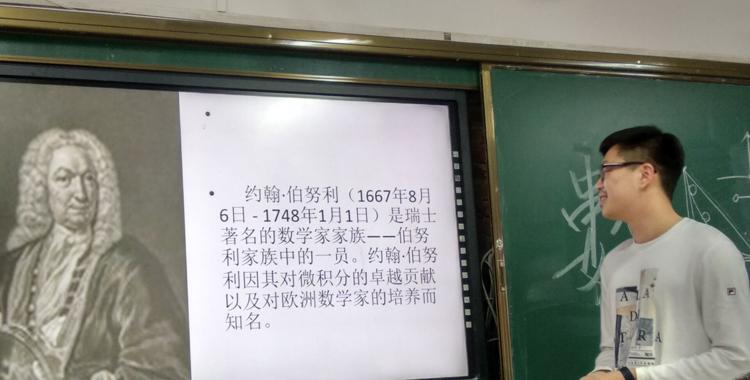 约翰·伯努利（1667年8月
6日 - 1748年1月1日）是瑞士
著名的数学家家族——伯努
利家族中的一员。约翰·伯努
利因其对微积分的卓越贡献
以及对欧洲数学家的培养而
知名。